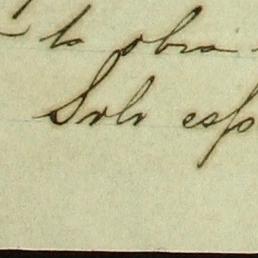 la obra
Solo esp